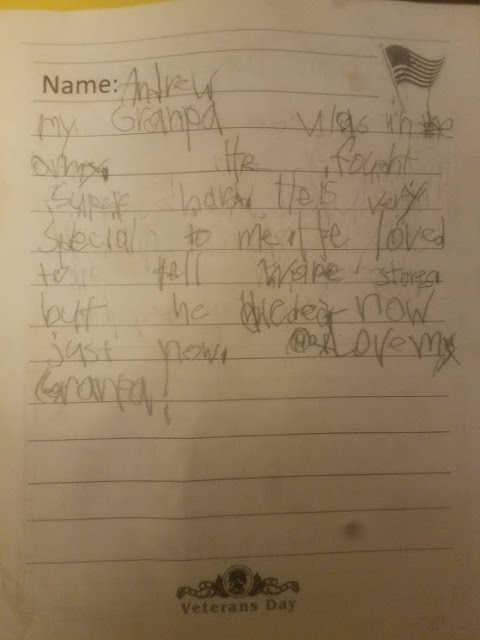 Name: Andrew
my Granpa was in the
army. He fought
super hard. He is very
special to me. He loved
to tell stores
but he now
just now. Love my
Granpa!
Veterans Day